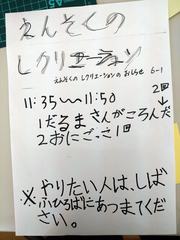 えんそくの
レクリエーション
えんそくの レクリエーションの おしらせ 6-1
11:35〜11:50 2回
1だるまさんがころんだ
2おにごっこ1回
※やりたい人は、しば
ふひろばにあつまてくだ
さい。